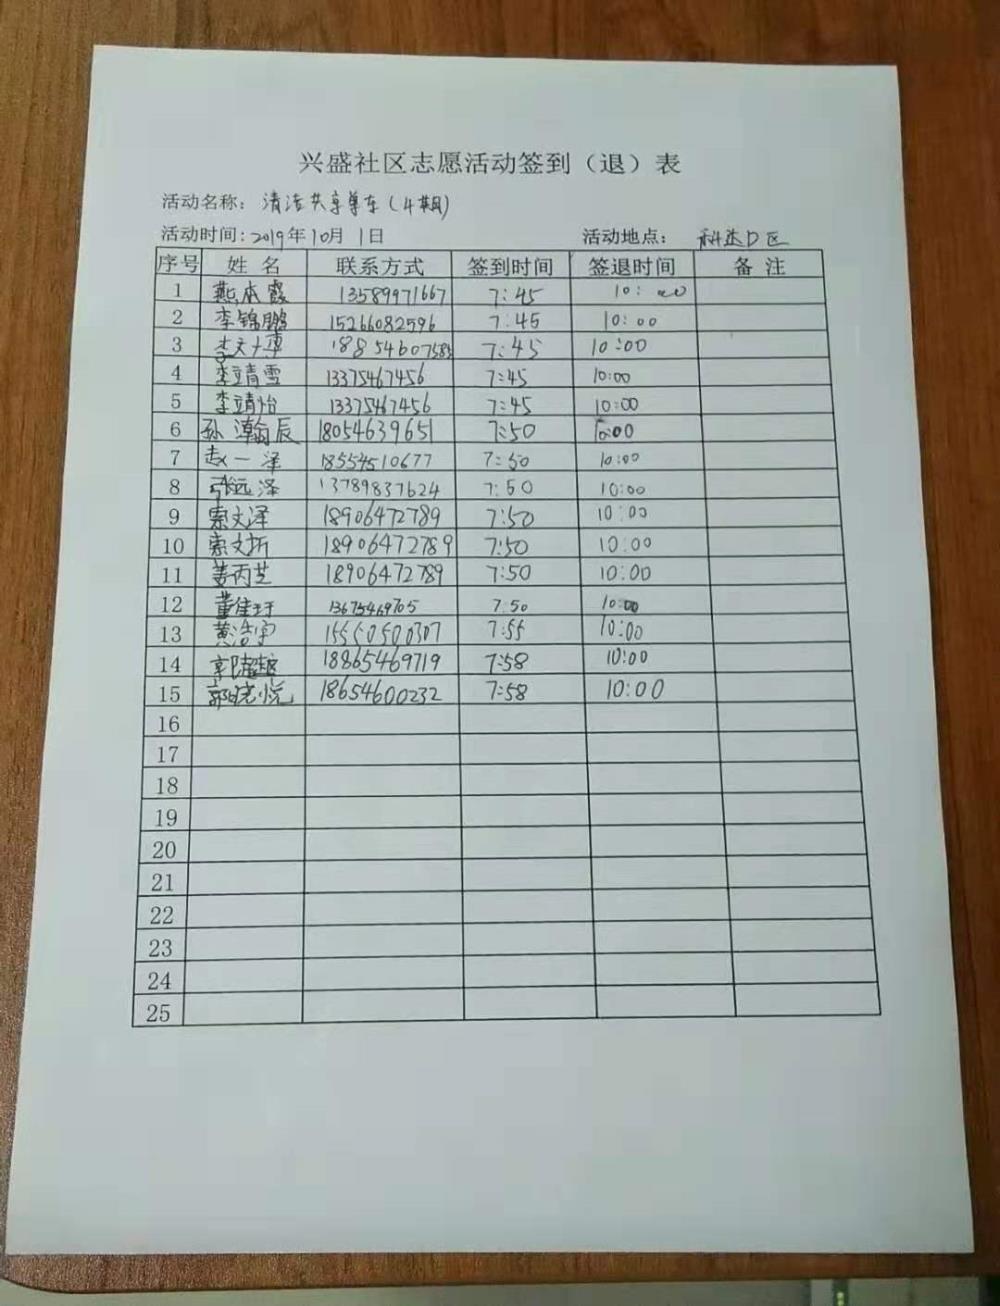 兴盛社区志愿活动签到（退）表
活动名称：清洁共享单车（4期）
活动时间：2019年10月1日 活动地点：科达D区
序号 姓名 联系方式 签到时间 签退时间 备注
1 燕本霞 13589971667 7:45 10:00
2 李锦鹏 15266082596 7:45 10:00
3 7:45 10:00
4 李靖雪 13375467456 7:45 10:00
5 李靖怡 13375467456 7:45 10:00
6 孙瀚辰 18054639651 7:50 10:00
7 赵一泽 18554510677 7:50 10:00
8 张远泽 13789837624 7:50 10:00
9 索文泽 18906472789 7:50 10:00
10 索文折 18906472789 7:50 10:00
11 姜丙芝 18906472789 7:50 10:00
12 董佳玗 13675469705 7:50 10:00
13 黄浩宇 15550500307 7:55 10:00
14 18865469719 7:58 10:00
15 郭晓悦 18654600232 7:58 10:00
16
17
18
19
20
21
22
23
24
25